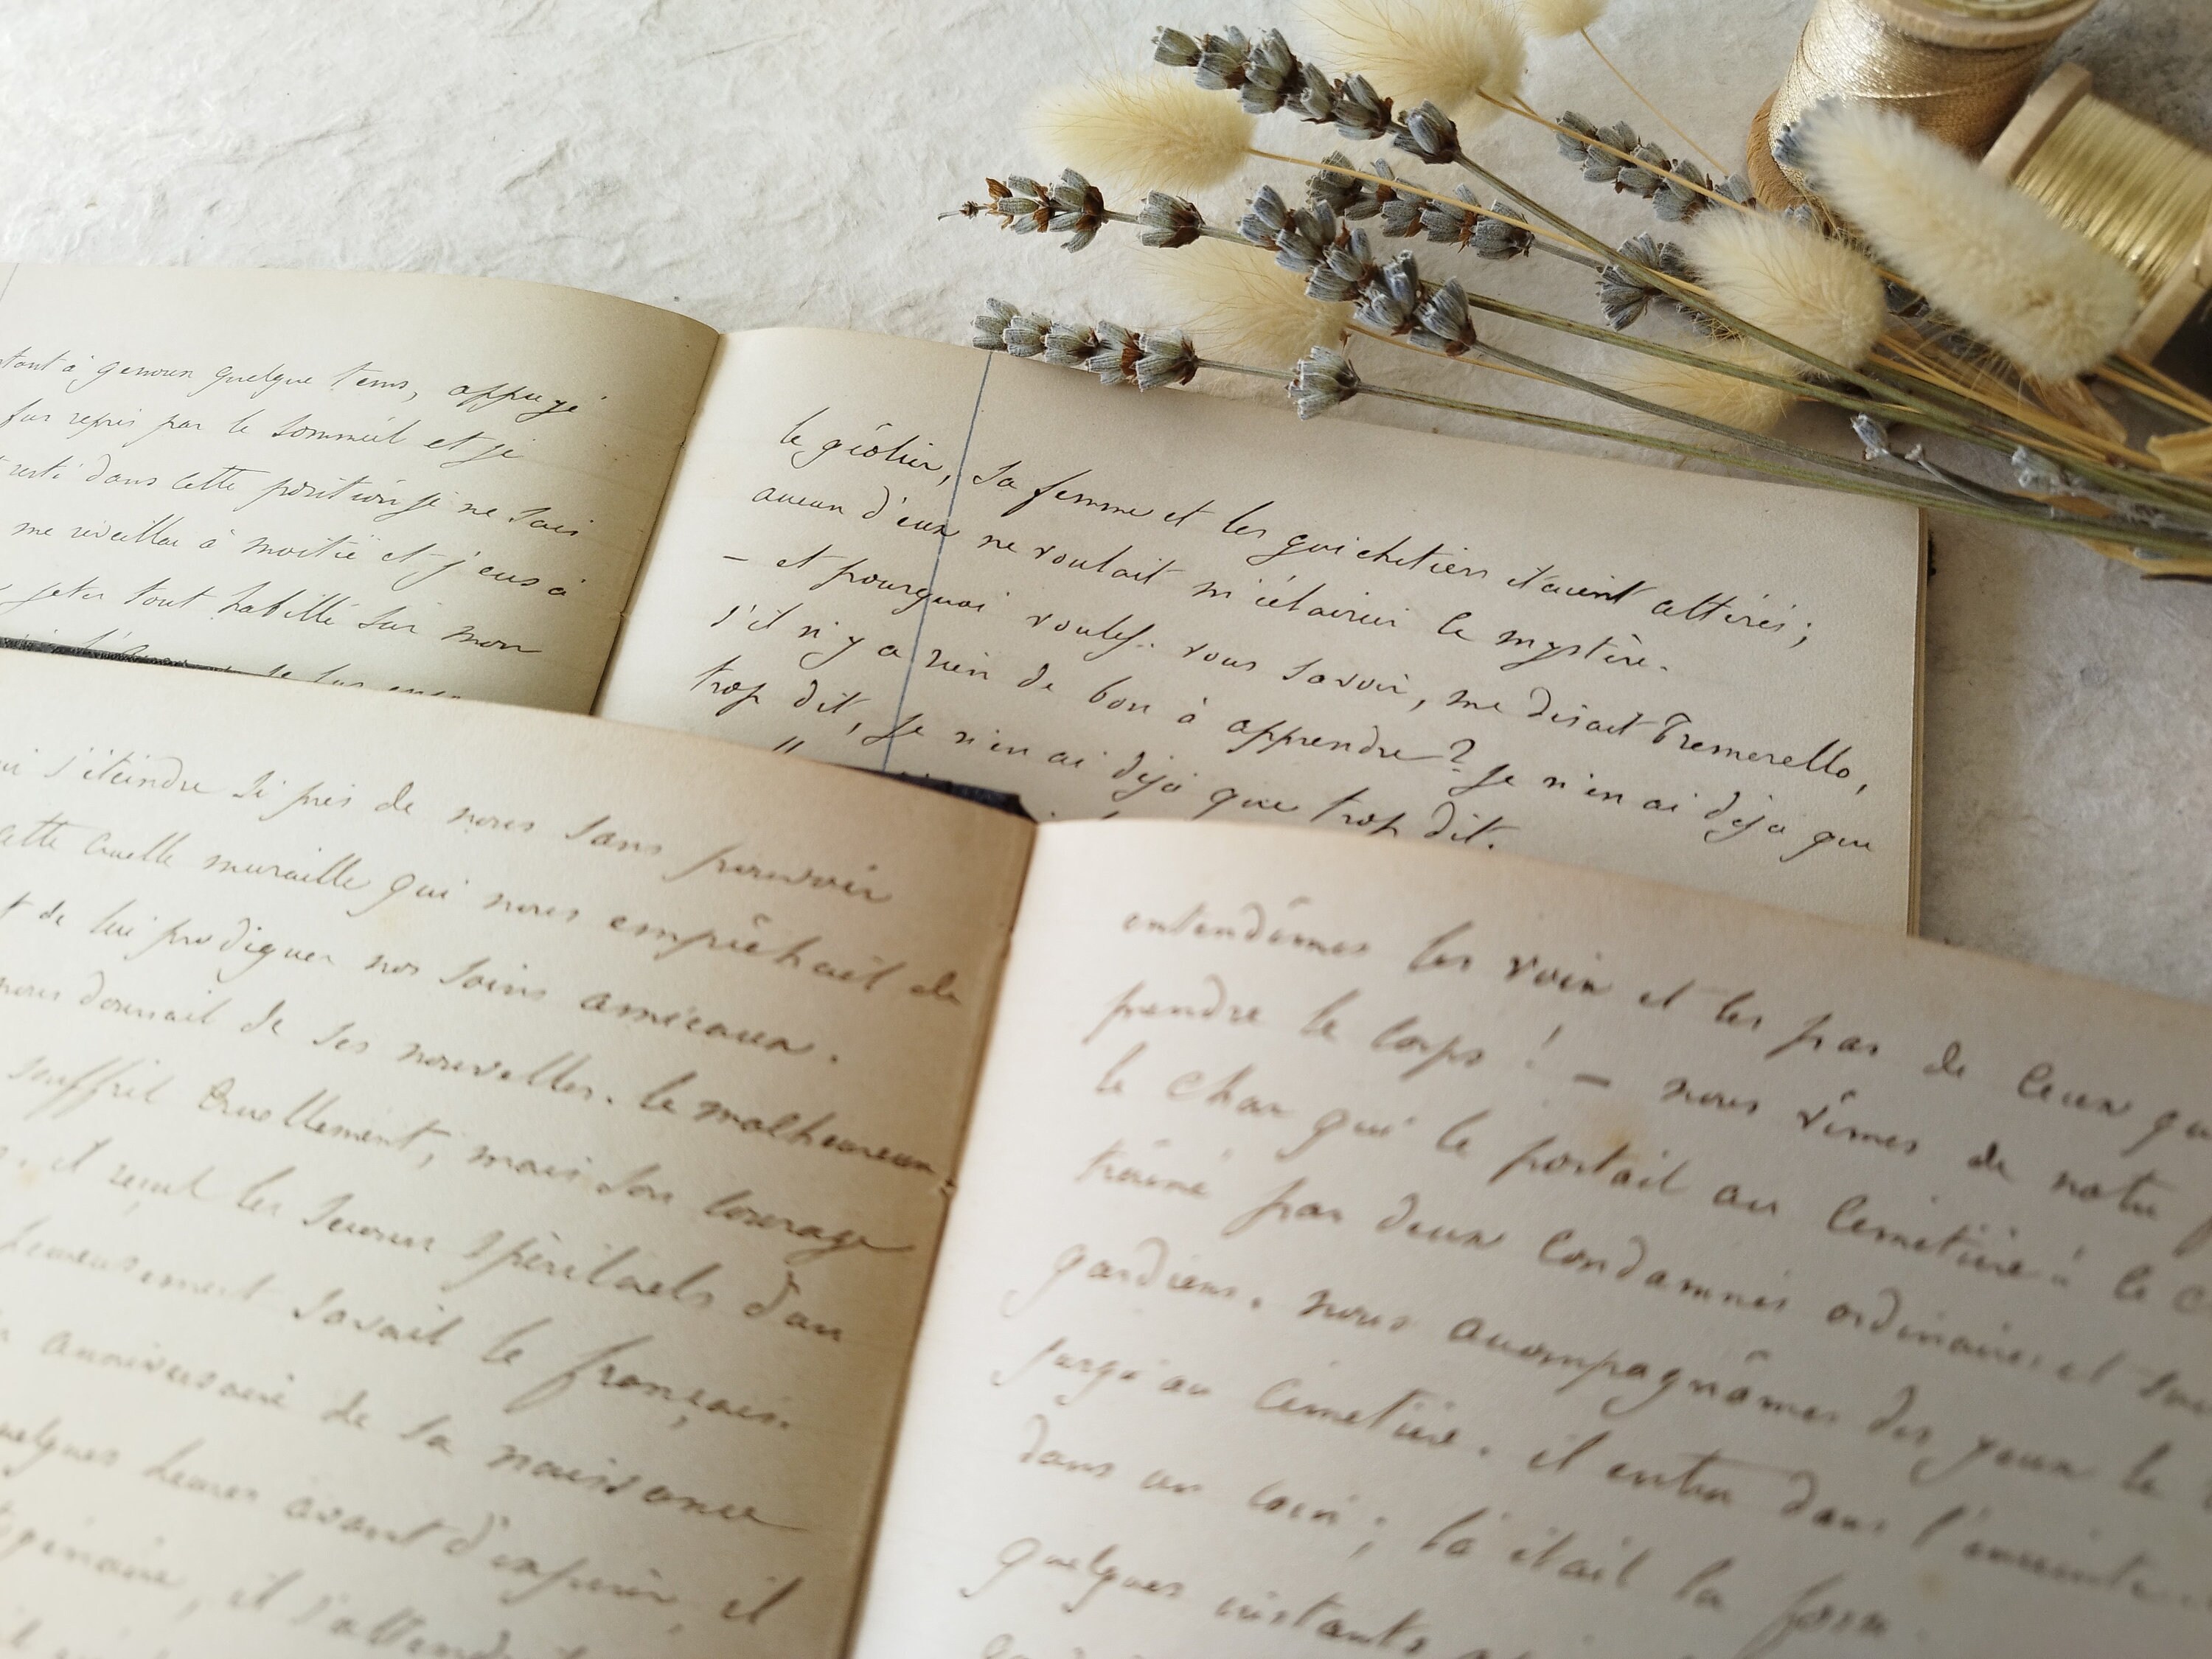 à genoux quelque tems, appuyé
fus repris par le sommeil et je
resté dans cette position je ne sais
me réveillai à moitié et j'eus à
jeter tout habillé sur mon
le geôlier, sa femme et les guichetiers étaient attérés;
aucun d'eux ne voulait m'éclaircir le mystère.
– et pourquoi voulez-vous savoir, me disait Tremerello,
s'il n'y a rien de bon à apprendre? Je n'en ai déjà que
trop dit, Je n'en ai déjà que trop dit.
s'éteindre si près de nous sans pouvoir
cette cruelle muraille qui nous empêchait de
de lui prodiguer nos soins amicaux.
nous donnait de ses nouvelles. le malheureux
souffrit cruellement, mais son courage
il reçut les secours spirituels d'un
heureusement savait le français.
anniversaire de sa naissance
quelques heures avant d'expirer, il
entendîmes les voix et les pas de ceux
prendre le corps! – nous vîmes de notre
le char qui le portait au cimetière: le
traîné par deux condamnés ordinaires et
gardiens. nous accompagnâmes des yeux le
jusqu'au cimetière. il entra dans l'enceinte
dans un coin; là était la
quelques instants